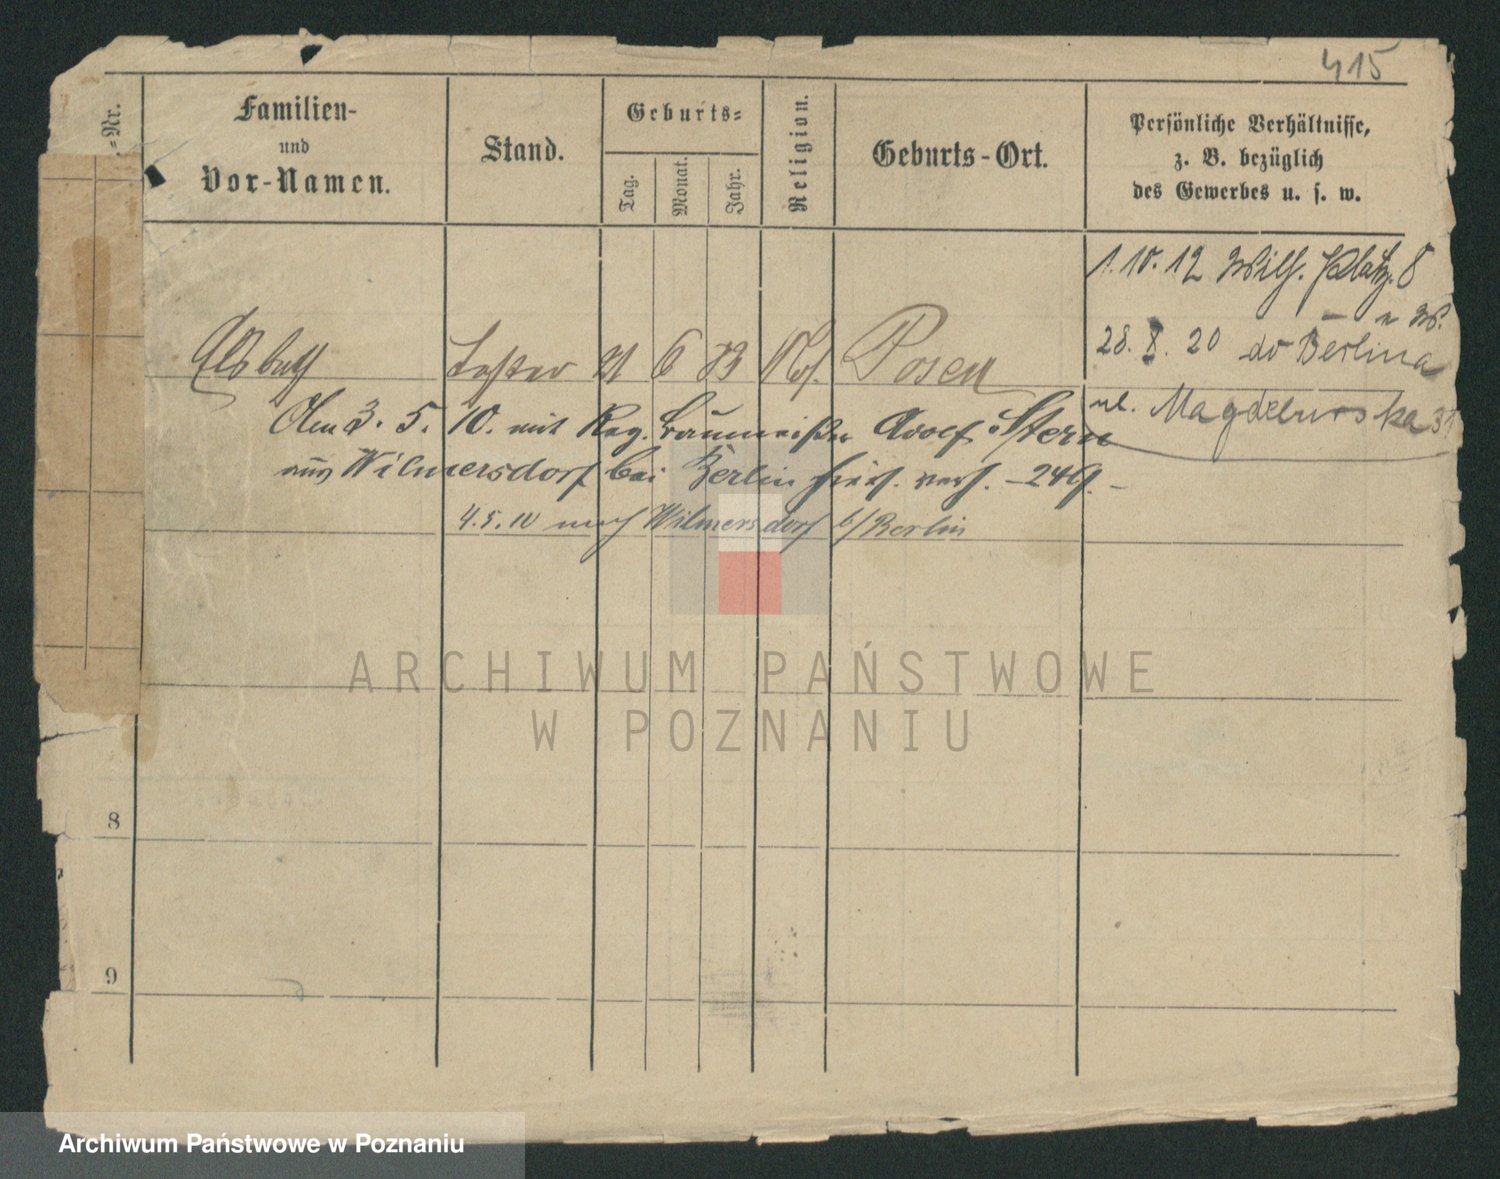 415
=Nr.
Familien-
und
Vor-Namen.
Stand.
Geburts=
Tag.
Monat.
Jahr.
Religion.
Geburts-Ort.
Persönliche Verhältnisse,
z. B. bezüglich
des Gewerbes u. s. w.
1.10.12 Wilh. Platz. 8
28. 8. 20 do Berlina
ul. Magdeburska
Elsbeth Tochter 6 83 Mos. Posen
Am 3. 5. 10. mit Reg. Baumeister Adolf Stern
aus Wilmersdorf bei Berlin hier verh.
4.5.10 nach Wilmersdorf b/Berlin
ARCHIWUM PAŃSTWOWE
W POZNANIU
8
9
Archiwum Państwowe w Poznaniu